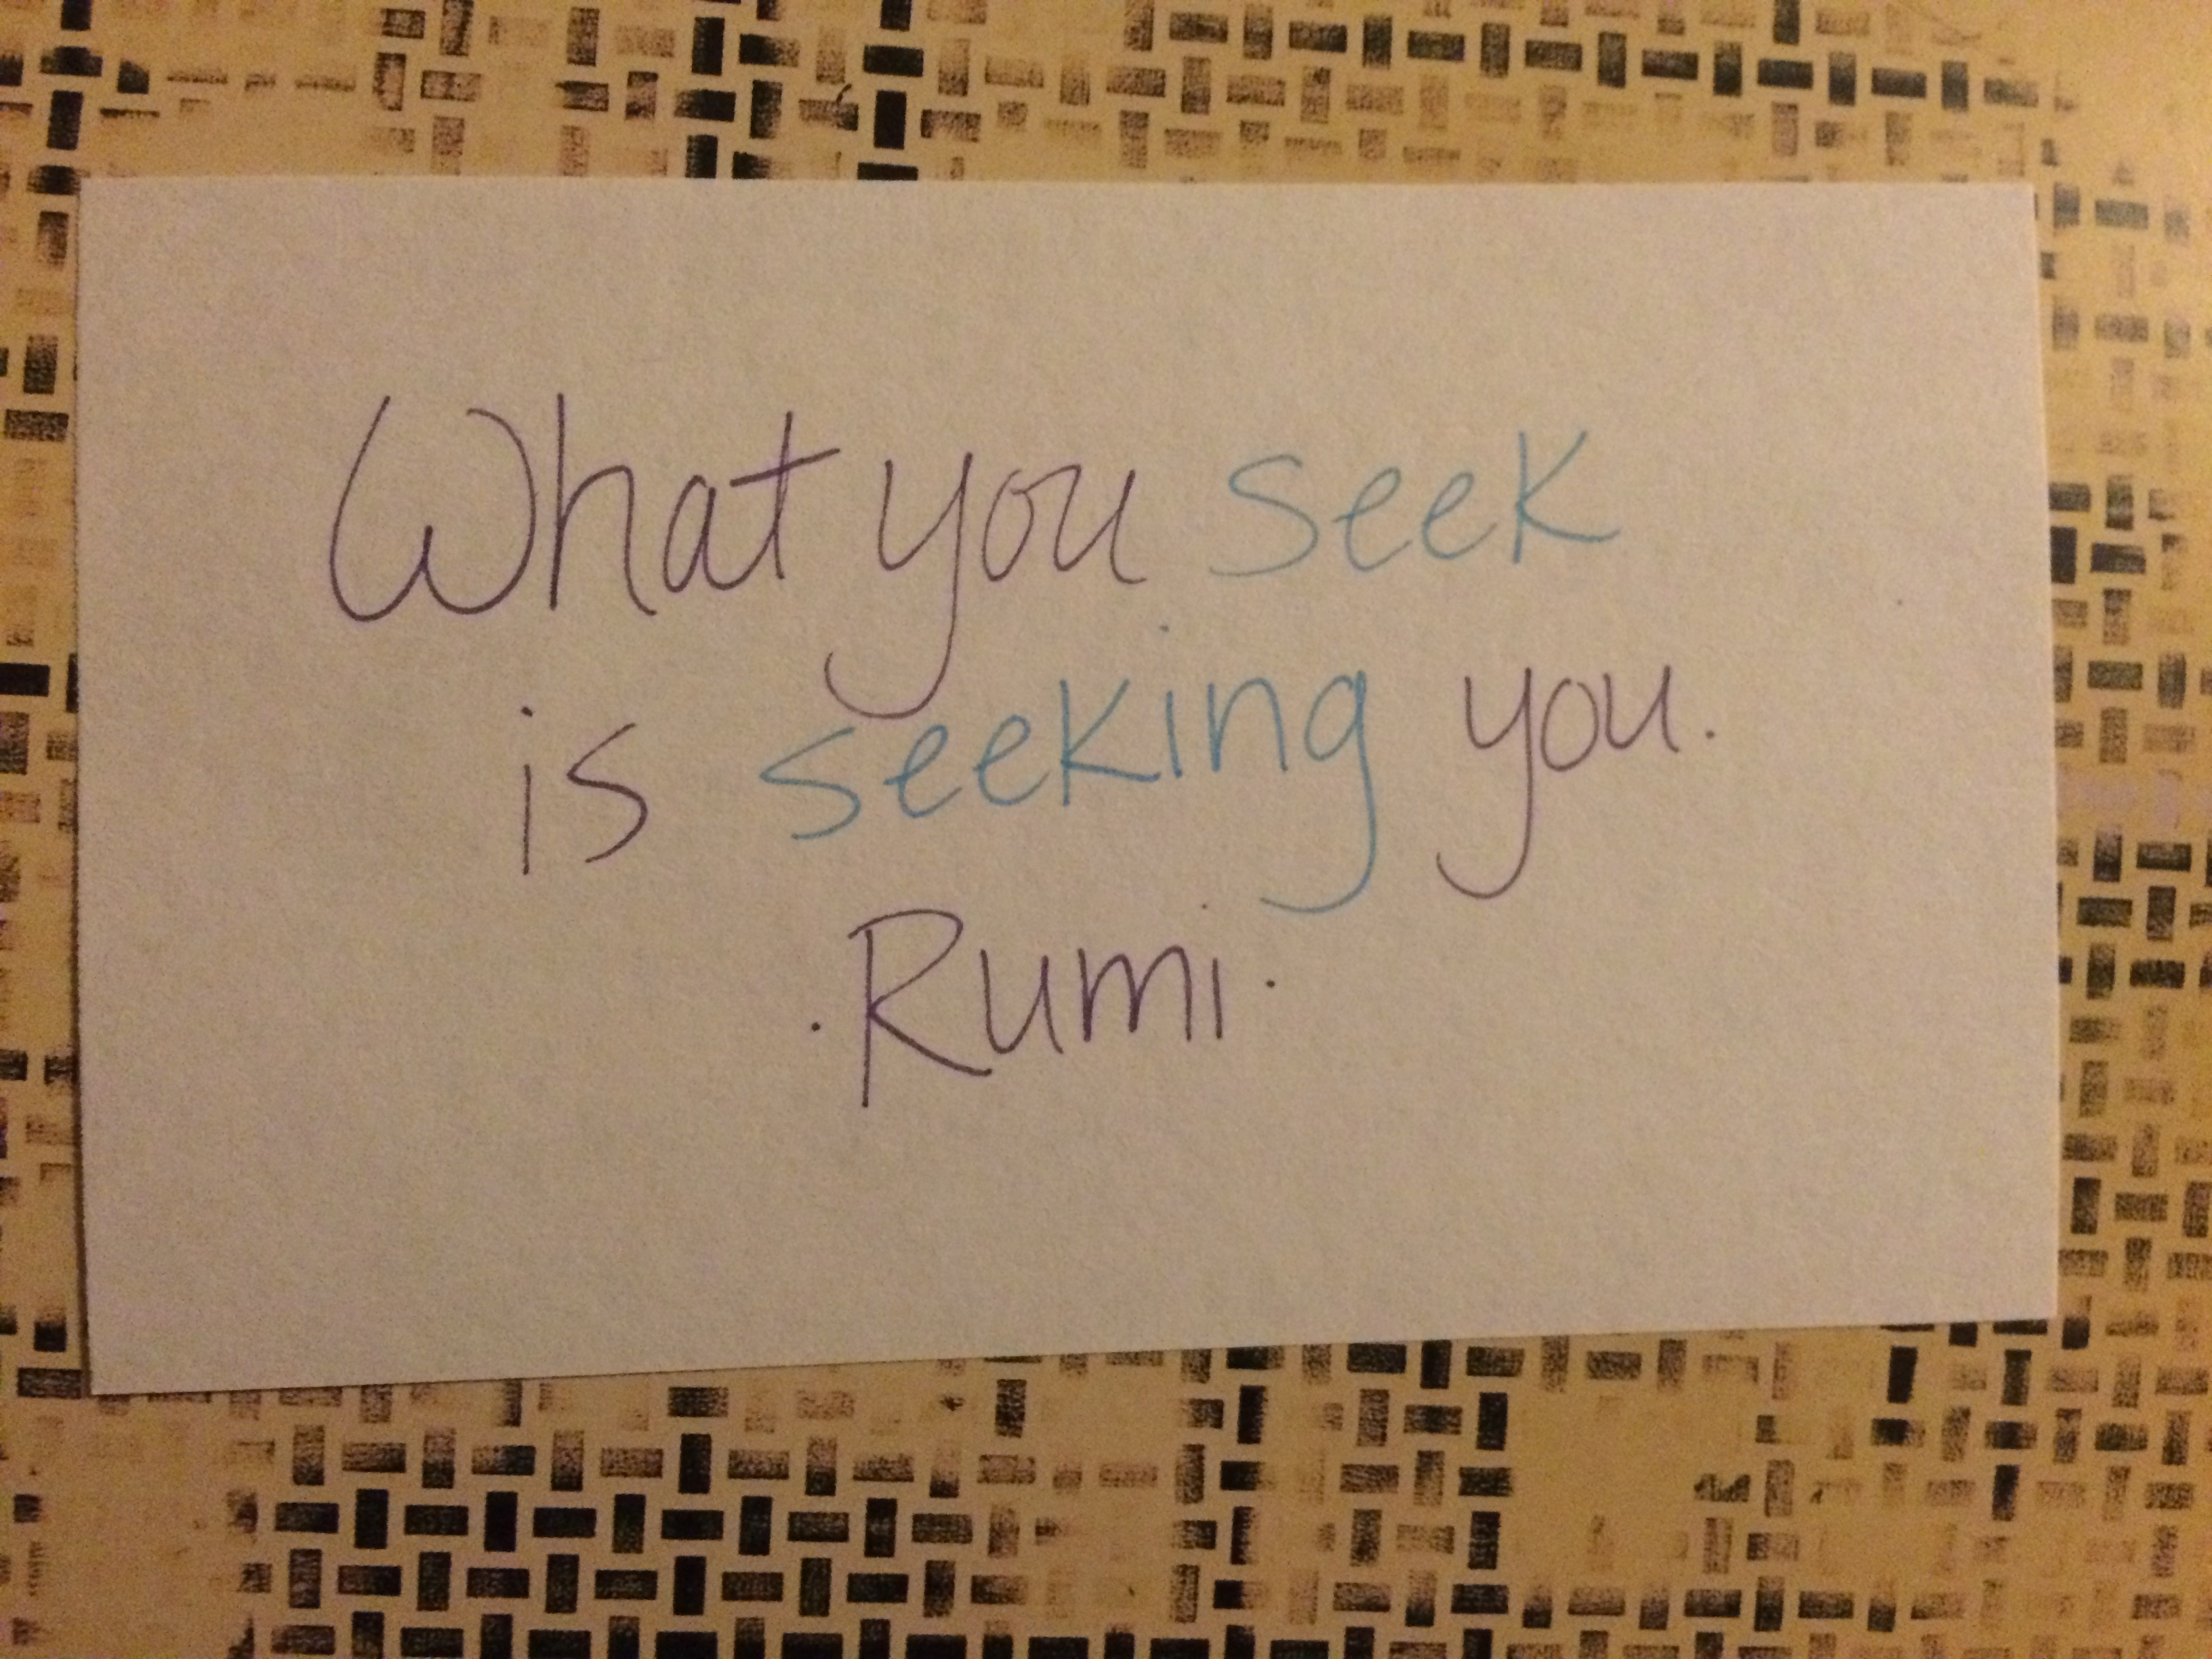 What you seek
is seeking you.
·Rumi·